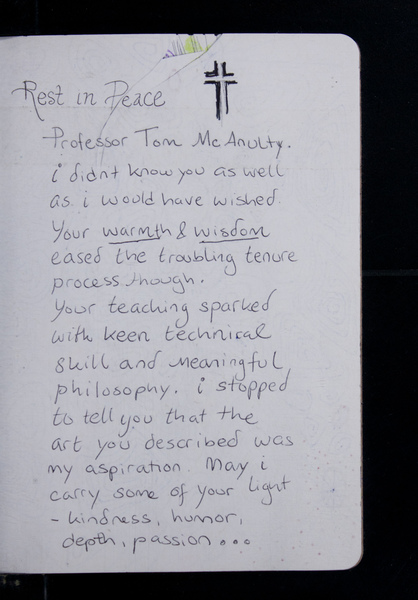 Rest in Peace
Professor Tom McAnulty.
i didnt know you as well
as i would have wished.
Your warmth & wisdom
eased the troubling tenure
process though.
Your teaching sparked
with keen technical
skill and meaningful
philosophy. i stopped
to tell you that the
art you described was
my aspiration. May i
carry some of your light
- kindness, humor,
depth, passion...